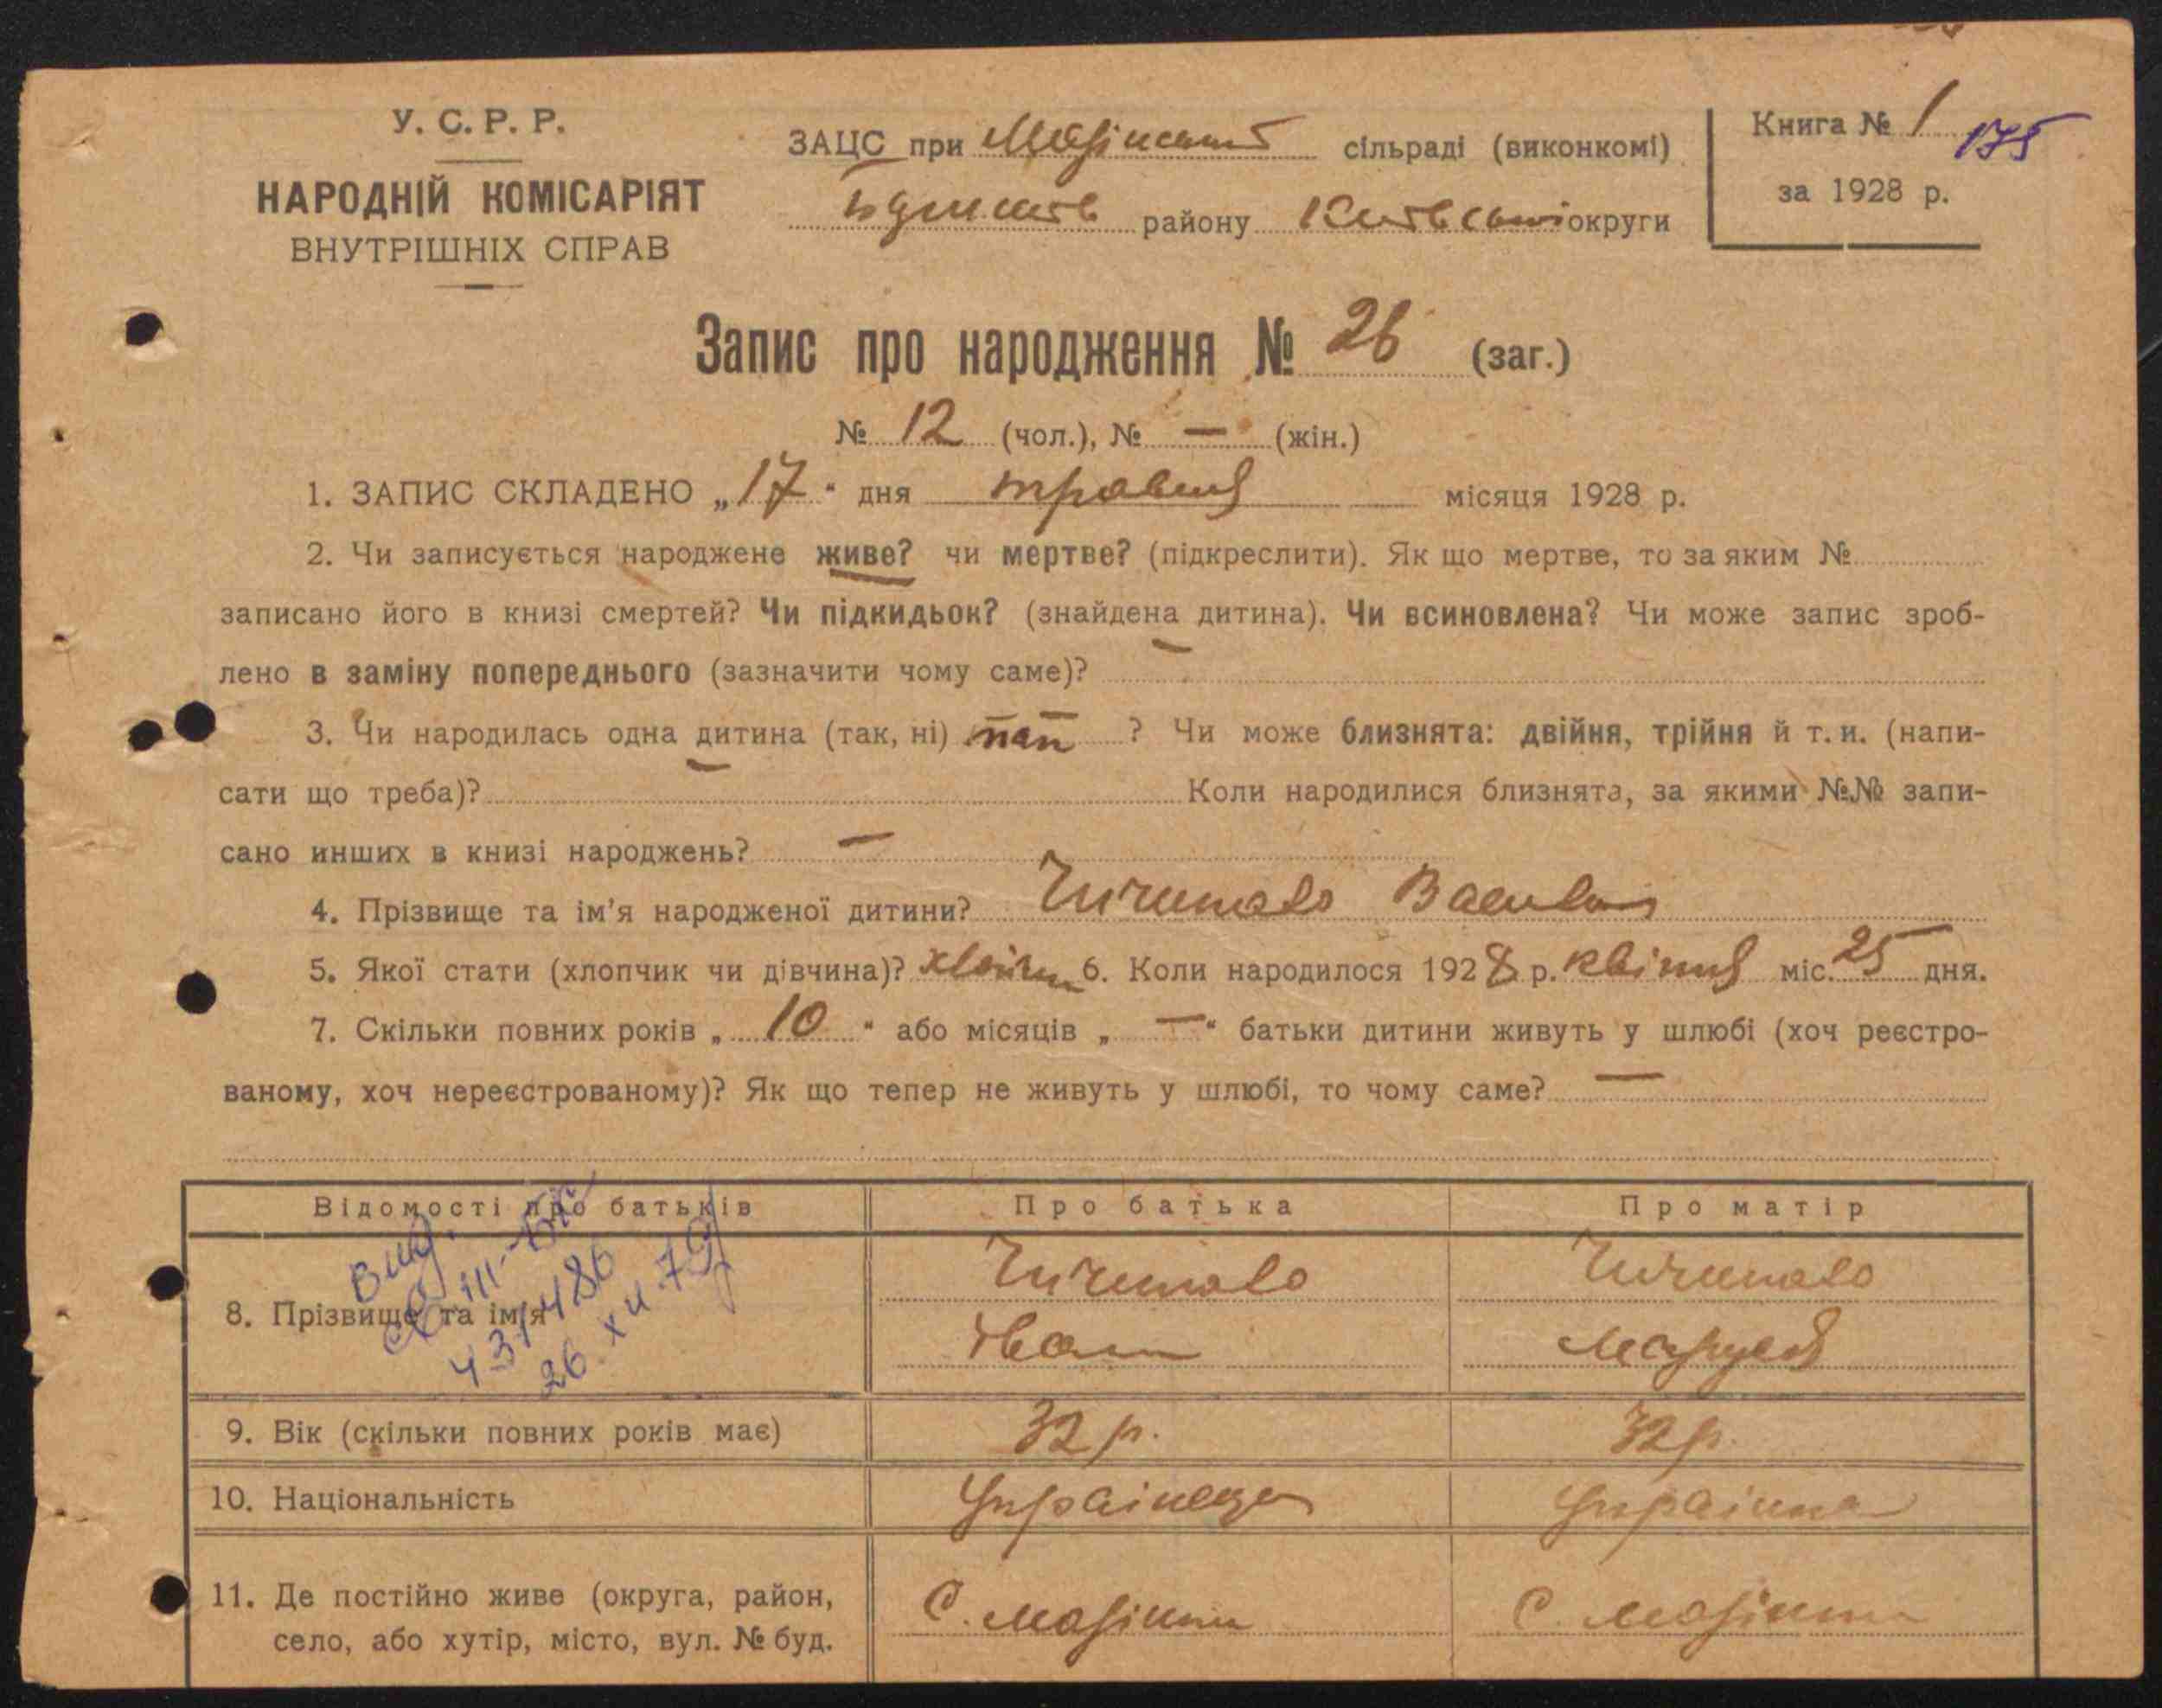 У. С. Р. Р.
НАРОДНІЙ КОМІСАРІЯТ
ВНУТРІШНІХ СПРАВ
ЗАЦС при сільраді (виконкомі)
району Київської округи
Книга № 1 175
за 1928 р.
Запис про народження № 26 (заг.)
№ 12 (чол.), № — (жін.)
1. ЗАПИС СКЛАДЕНО „17“ дня травня місяця 1928 р.
2. Чи записується народжене живе? чи мертве? (підкреслити). Як що мертве, то за яким №
записано його в книзі смертей? Чи підкидьок? (знайдена дитина). Чи всиновлена? Чи може запис зроб-
лено в заміну попереднього (зазначити чому саме)?
3. Чи народилась одна дитина (так, ні) так ? Чи може близнята: двійня, трійня й т. и. (напи-
сати що треба)? Коли народилися близнята, за якими №№ запи-
сано инших в книзі народжень? —
4. Прізвище та ім'я народженої дитини? Василь
5. Якої стати (хлопчик чи дівчина)? 6. Коли народилося 1928 р. квітня міс. 25 дня.
7. Скільки повних років „ 10 “ або місяців „ — “ батьки дитини живуть у шлюбі (хоч реєстро-
ваному, хоч нереєстрованому)? Як що тепер не живуть у шлюбі, то чому саме? —
Відомості про батьків Про батька Про матір
8. Прізвище та ім'я
Иван Маруся
9. Вік (скільки повних років має) 32 р. 32 р.
10. Національність Українець Українка
11. Де постійно живе (округа, район,
село, або хутір, місто, вул. № буд. С. С.